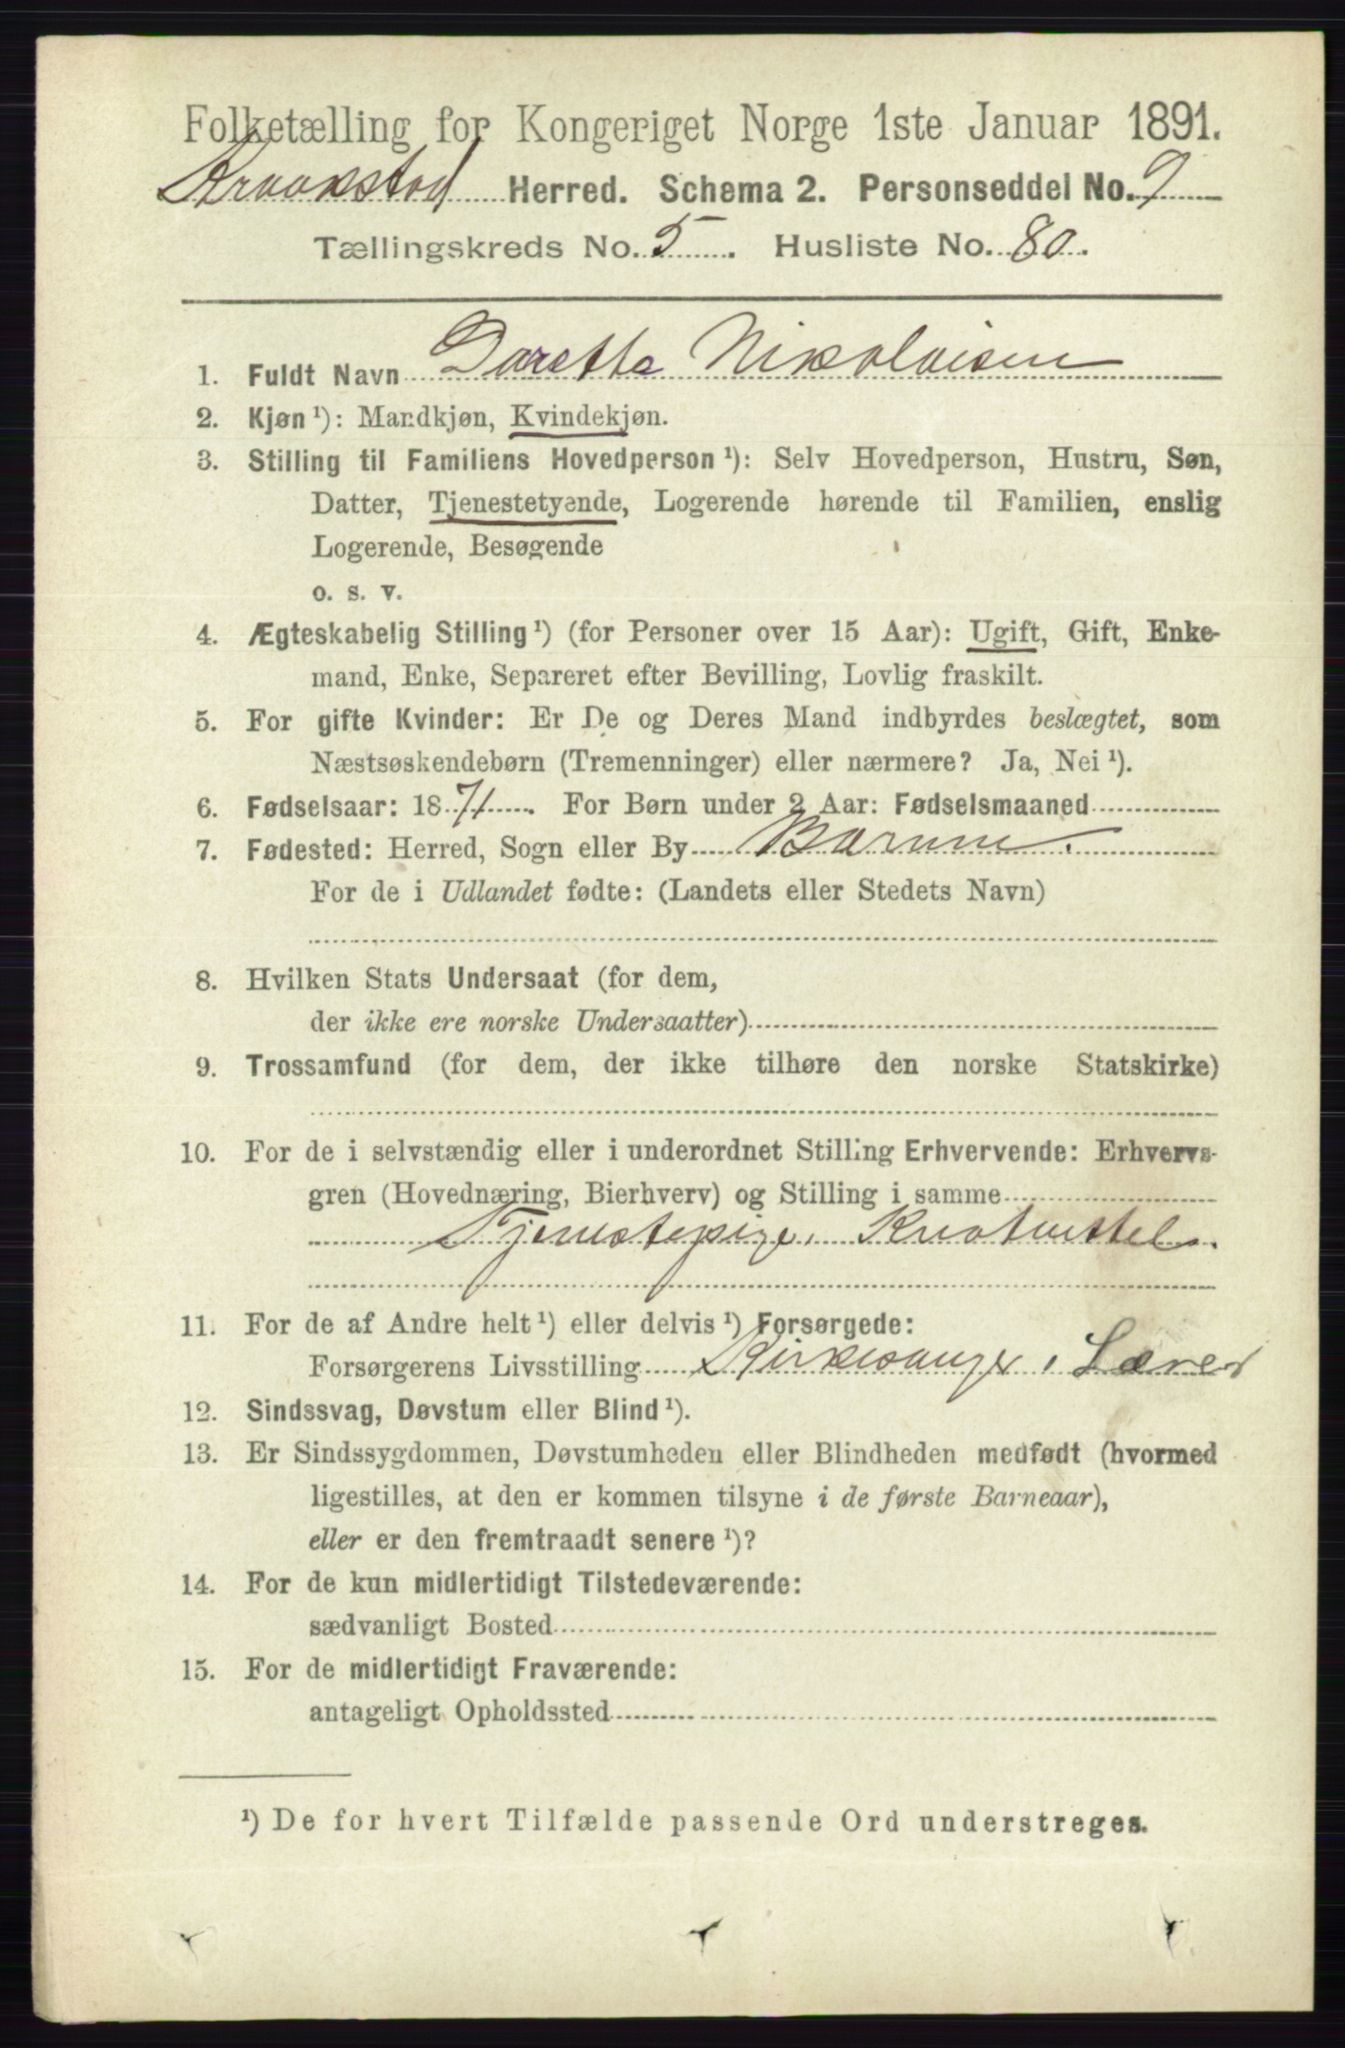 Folketælling for Kongeriget Norge 1ste Januar 1891.
Kraakstad Herred. Schema 2. Personseddel No. 9
Tællingskreds No. 5. Husliste No. 80.
1. Fuldt Navn Doretha Nikolaisen
2. Kjøn ¹): Mandkjøn, Kvindekjøn.
3. Stilling til Familiens Hovedperson ¹): Selv Hovedperson, Hustru, Søn,
Datter, Tjenestetyende, Logerende hørende til Familien, enslig
Logerende, Besøgende
o. s. v.
4. Ægteskabelig Stilling ¹) (for Personer over 15 Aar): Ugift, Gift, Enke-
mand, Enke, Separeret efter Bevilling, Lovlig fraskilt.
5. For gifte Kvinder: Er De og Deres Mand indbyrdes beslægtet, som
Næstsøskendebørn (Tremenninger) eller nærmere? Ja, Nei ¹).
6. Fødselsaar: 1871. For Børn under 2 Aar: Fødselsmaaned
7. Fødested: Herred, Sogn eller By Bærum.
For de i Udlandet fødte: (Landets eller Stedets Navn)
8. Hvilken Stats Undersaat (for dem,
der ikke ere norske Undersaatter)
9. Trossamfund (for dem, der ikke tilhøre den norske Statskirke)
10. For de i selvstændig eller i underordnet Stilling Erhvervende: Erhvervs-
gren (Hovednæring, Bierhverv) og Stilling i samme
Tjenestepige, Kreaturstel.
11. For de af Andre helt ¹) eller delvis ¹) Forsørgede:
Forsørgerens Livsstilling Kirkesanger, Lærer
12. Sindssvag, Døvstum eller Blind ¹).
13. Er Sindssygdommen, Døvstumheden eller Blindheden medfødt (hvormed
ligestilles, at den er kommen tilsyne i de første Barneaar),
eller er den fremtraadt senere ¹)?
14. For de kun midlertidigt Tilstedeværende:
sædvanligt Bosted
15. For de midlertidigt Fraværende:
antageligt Opholdssted
¹) De for hvert Tilfælde passende Ord understreges.